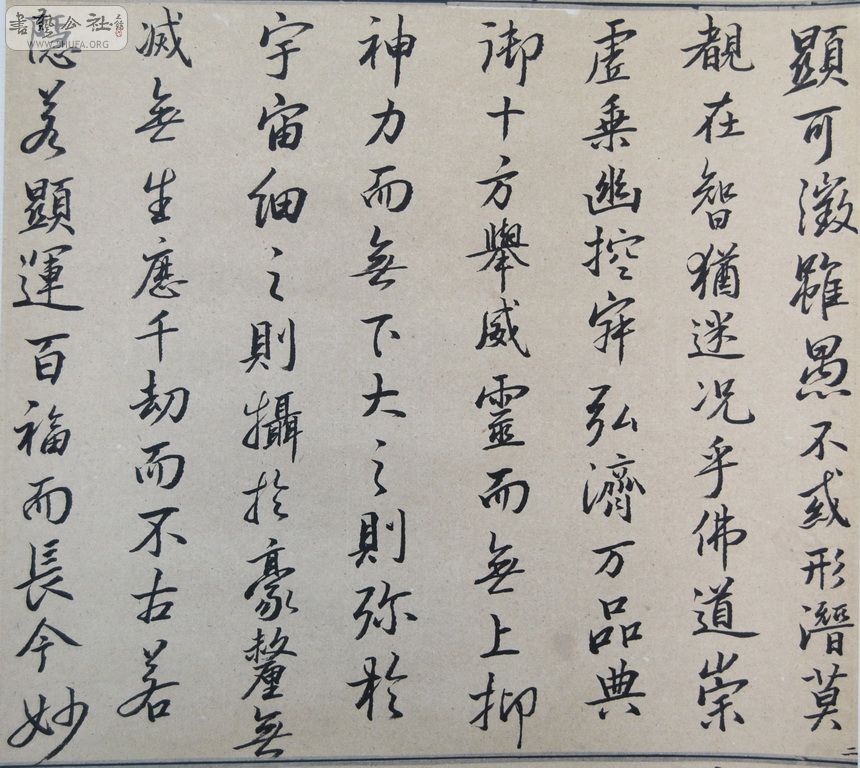 顯可徵雖愚不惑形潛莫
覩在智猶迷况乎佛道崇
虛乗幽控寂弘濟万品典
御十方舉威靈而無上抑
神力而無下大之則弥於
宇宙細之則攝於豪釐無
滅無生應千劫而不古若
隱若顯運百福而長今妙
二
書藝公社
WWW.SHUFA.ORG